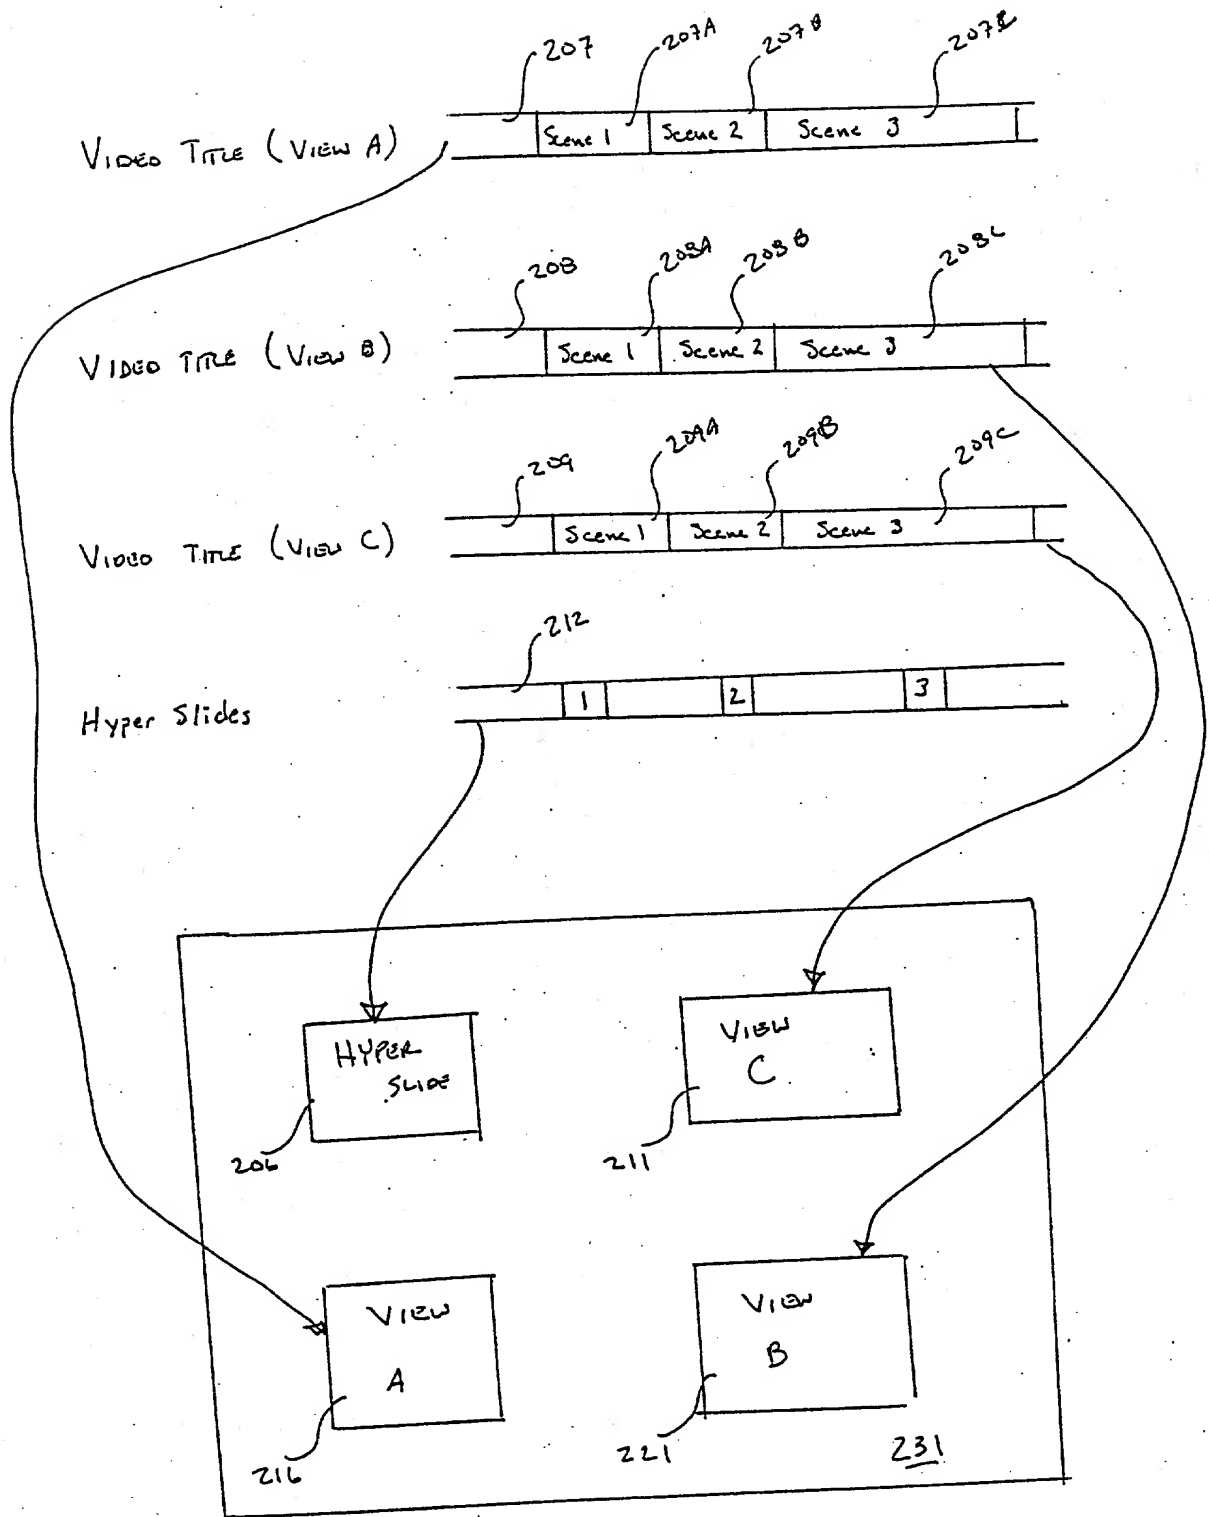 207 207A 207B 207C
VIDEO TITLE (VIEW A) Scene 1 Scene 2 Scene 3
208 208A 208B 208C
VIDEO TITLE (VIEW B) Scene 1 Scene 2 Scene 3
209 209A 209B 209C
VIDEO TITLE (VIEW C) Scene 1 Scene 2 Scene 3
212
Hyper Slides 1 2 3
HYPER
SLIDE
206
VIEW
C
211
VIEW
A
216
VIEW
B
221
231